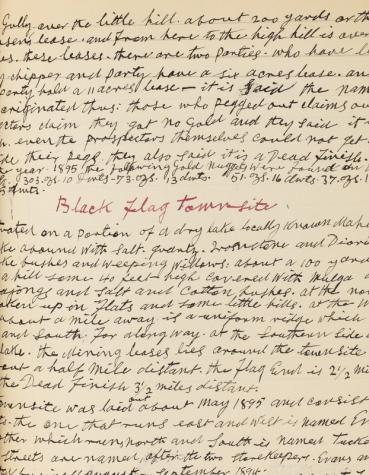 Gully. over the little hill. about 200 yards. or th
lease. and from here to the high hill is over
es. these leases. there are two parties. who have l
y chipper and party have a six acres lease. an
party hold a 11 acres lease - it is said the nam
originated thus: those who pegged out claims ou
claim they got no Gold and they said it
even the prospectors themselves could not get
their pegs. they also said it is a Dead finish.
year. 1895 the following Gold Nuggets were found
303. ozs. 10 dwts. - 73. ozs. 13 dwts. 51. ozs. 16 dwts. 37. ozs. 1
dwts.
Black Flag townsite.
uated on a portion of a dry lake locally known
abound with Salt. Ironstone and Diori
ke bushes and weeping Willows. about a 100 yards
a hill some 40 feet high covered with Mulga
and Salt and Cotton bushes. at the no
taken up in flats and some little hills. at the W
about a mile away is a uniform ridge which
and South. for a long way. at the Southern side o
lake. the Mining leases lies around the townsite
out a half mile distant. the flag End is 2½ mi
the Dead Finish 3½ miles distant.
townsite was laid out about May 1895 and consist
ts. the one that runs east and West is named Ev
ther which runs north and South is named Tucke
streets are named, after the two storekeepers. Evans a
August September 189